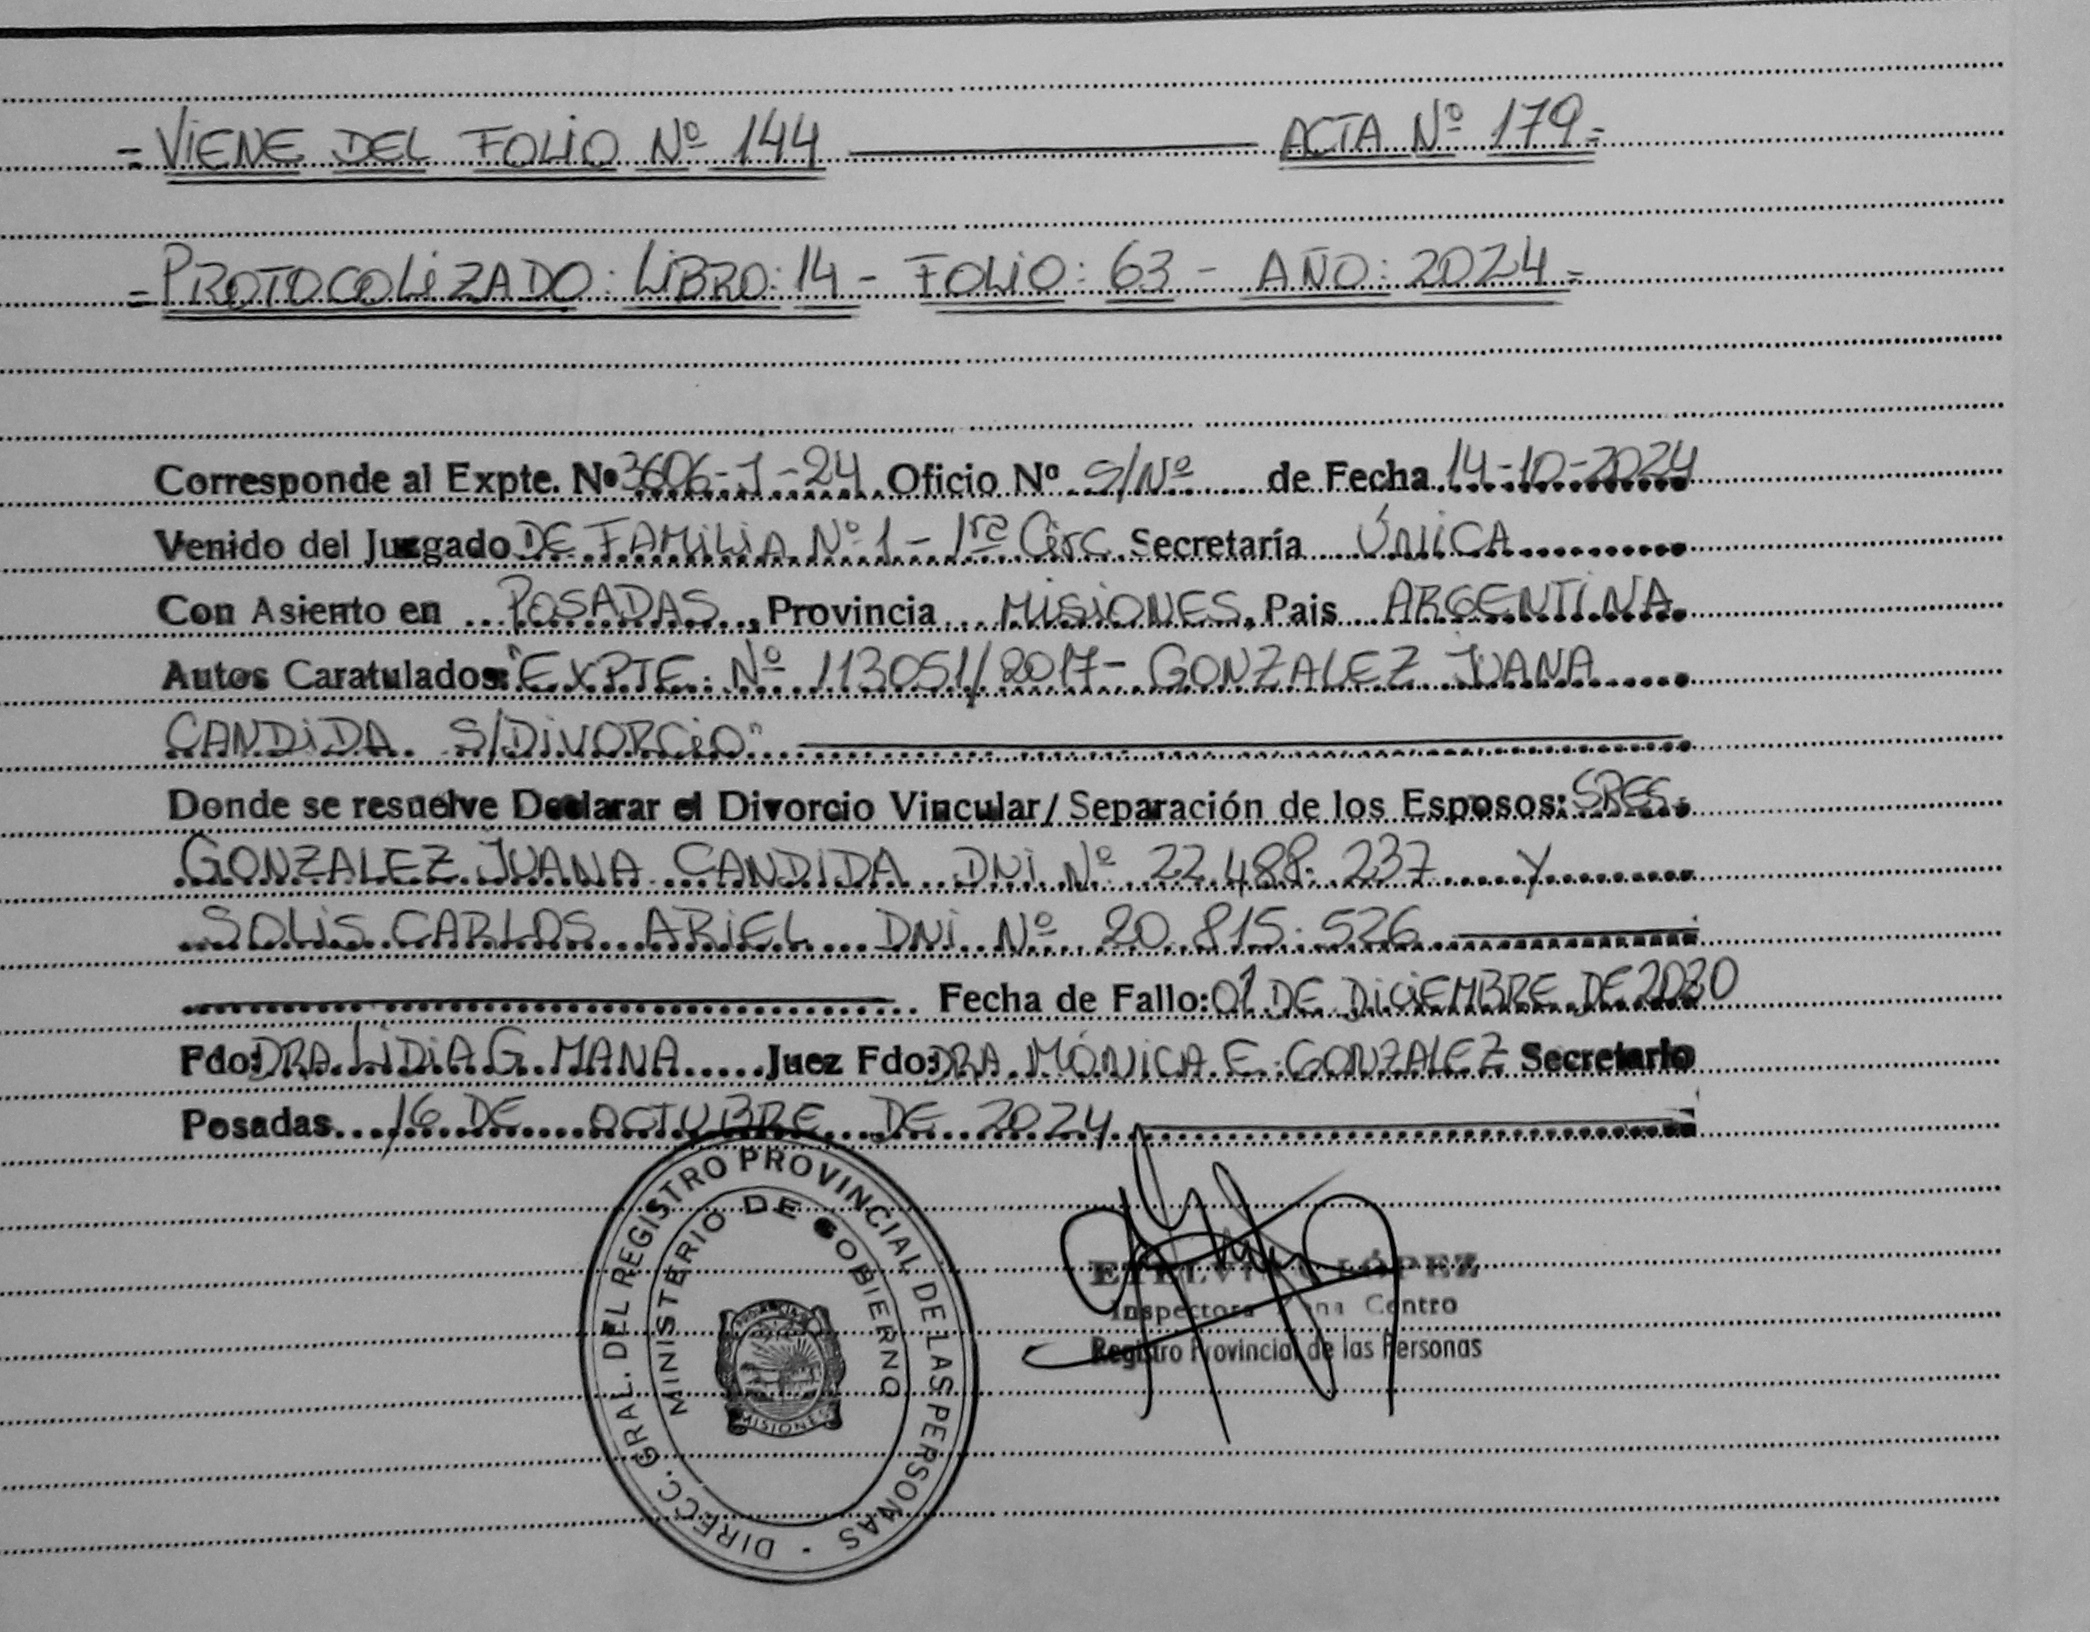 = VIENE DEL FOLIO Nº 144 ACTA Nº 179 =
= PROTOCOLIZADO: LIBRO: 14 - FOLIO: 63 - AÑO: 2024 =
Corresponde al Expte. Nº 3606-J-24 Oficio Nº S/Nº de Fecha 14-10-2024
Venido del Juzgado DE FAMILIA Nº 1 - 1ra Circ Secretaría ÚNICA
Con Asiento en POSADAS, Provincia MISIONES, Pais ARGENTINA
Autos Caratulados: "EXPTE. Nº 113051/2017 - GONZALEZ JUANA
CANDIDA S/DIVORCIO"
Donde se resuelve Declarar el Divorcio Vincular/Separación de los Esposos: SRES.
GONZALEZ JUANA CANDIDA DNI Nº 22.488.237 Y
SOLIS CARLOS ARIEL DNI Nº 20.815.526
Fecha de Fallo: 01 DE DICIEMBRE DE 2020
Fdo: DRA. LIDIA G. MANA Juez Fdo: DRA. MÓNICA E. GONZALEZ Secretario
Posadas 16 DE OCTUBRE DE 2024
DIRECC. GRAL. DEL REGISTRO PROVINCIAL DE LAS PERSONAS
MINISTERIO DE GOBIERNO
MISIONES
LÓPEZ
Inspectora Zona Centro
Registro Provincial de las Personas